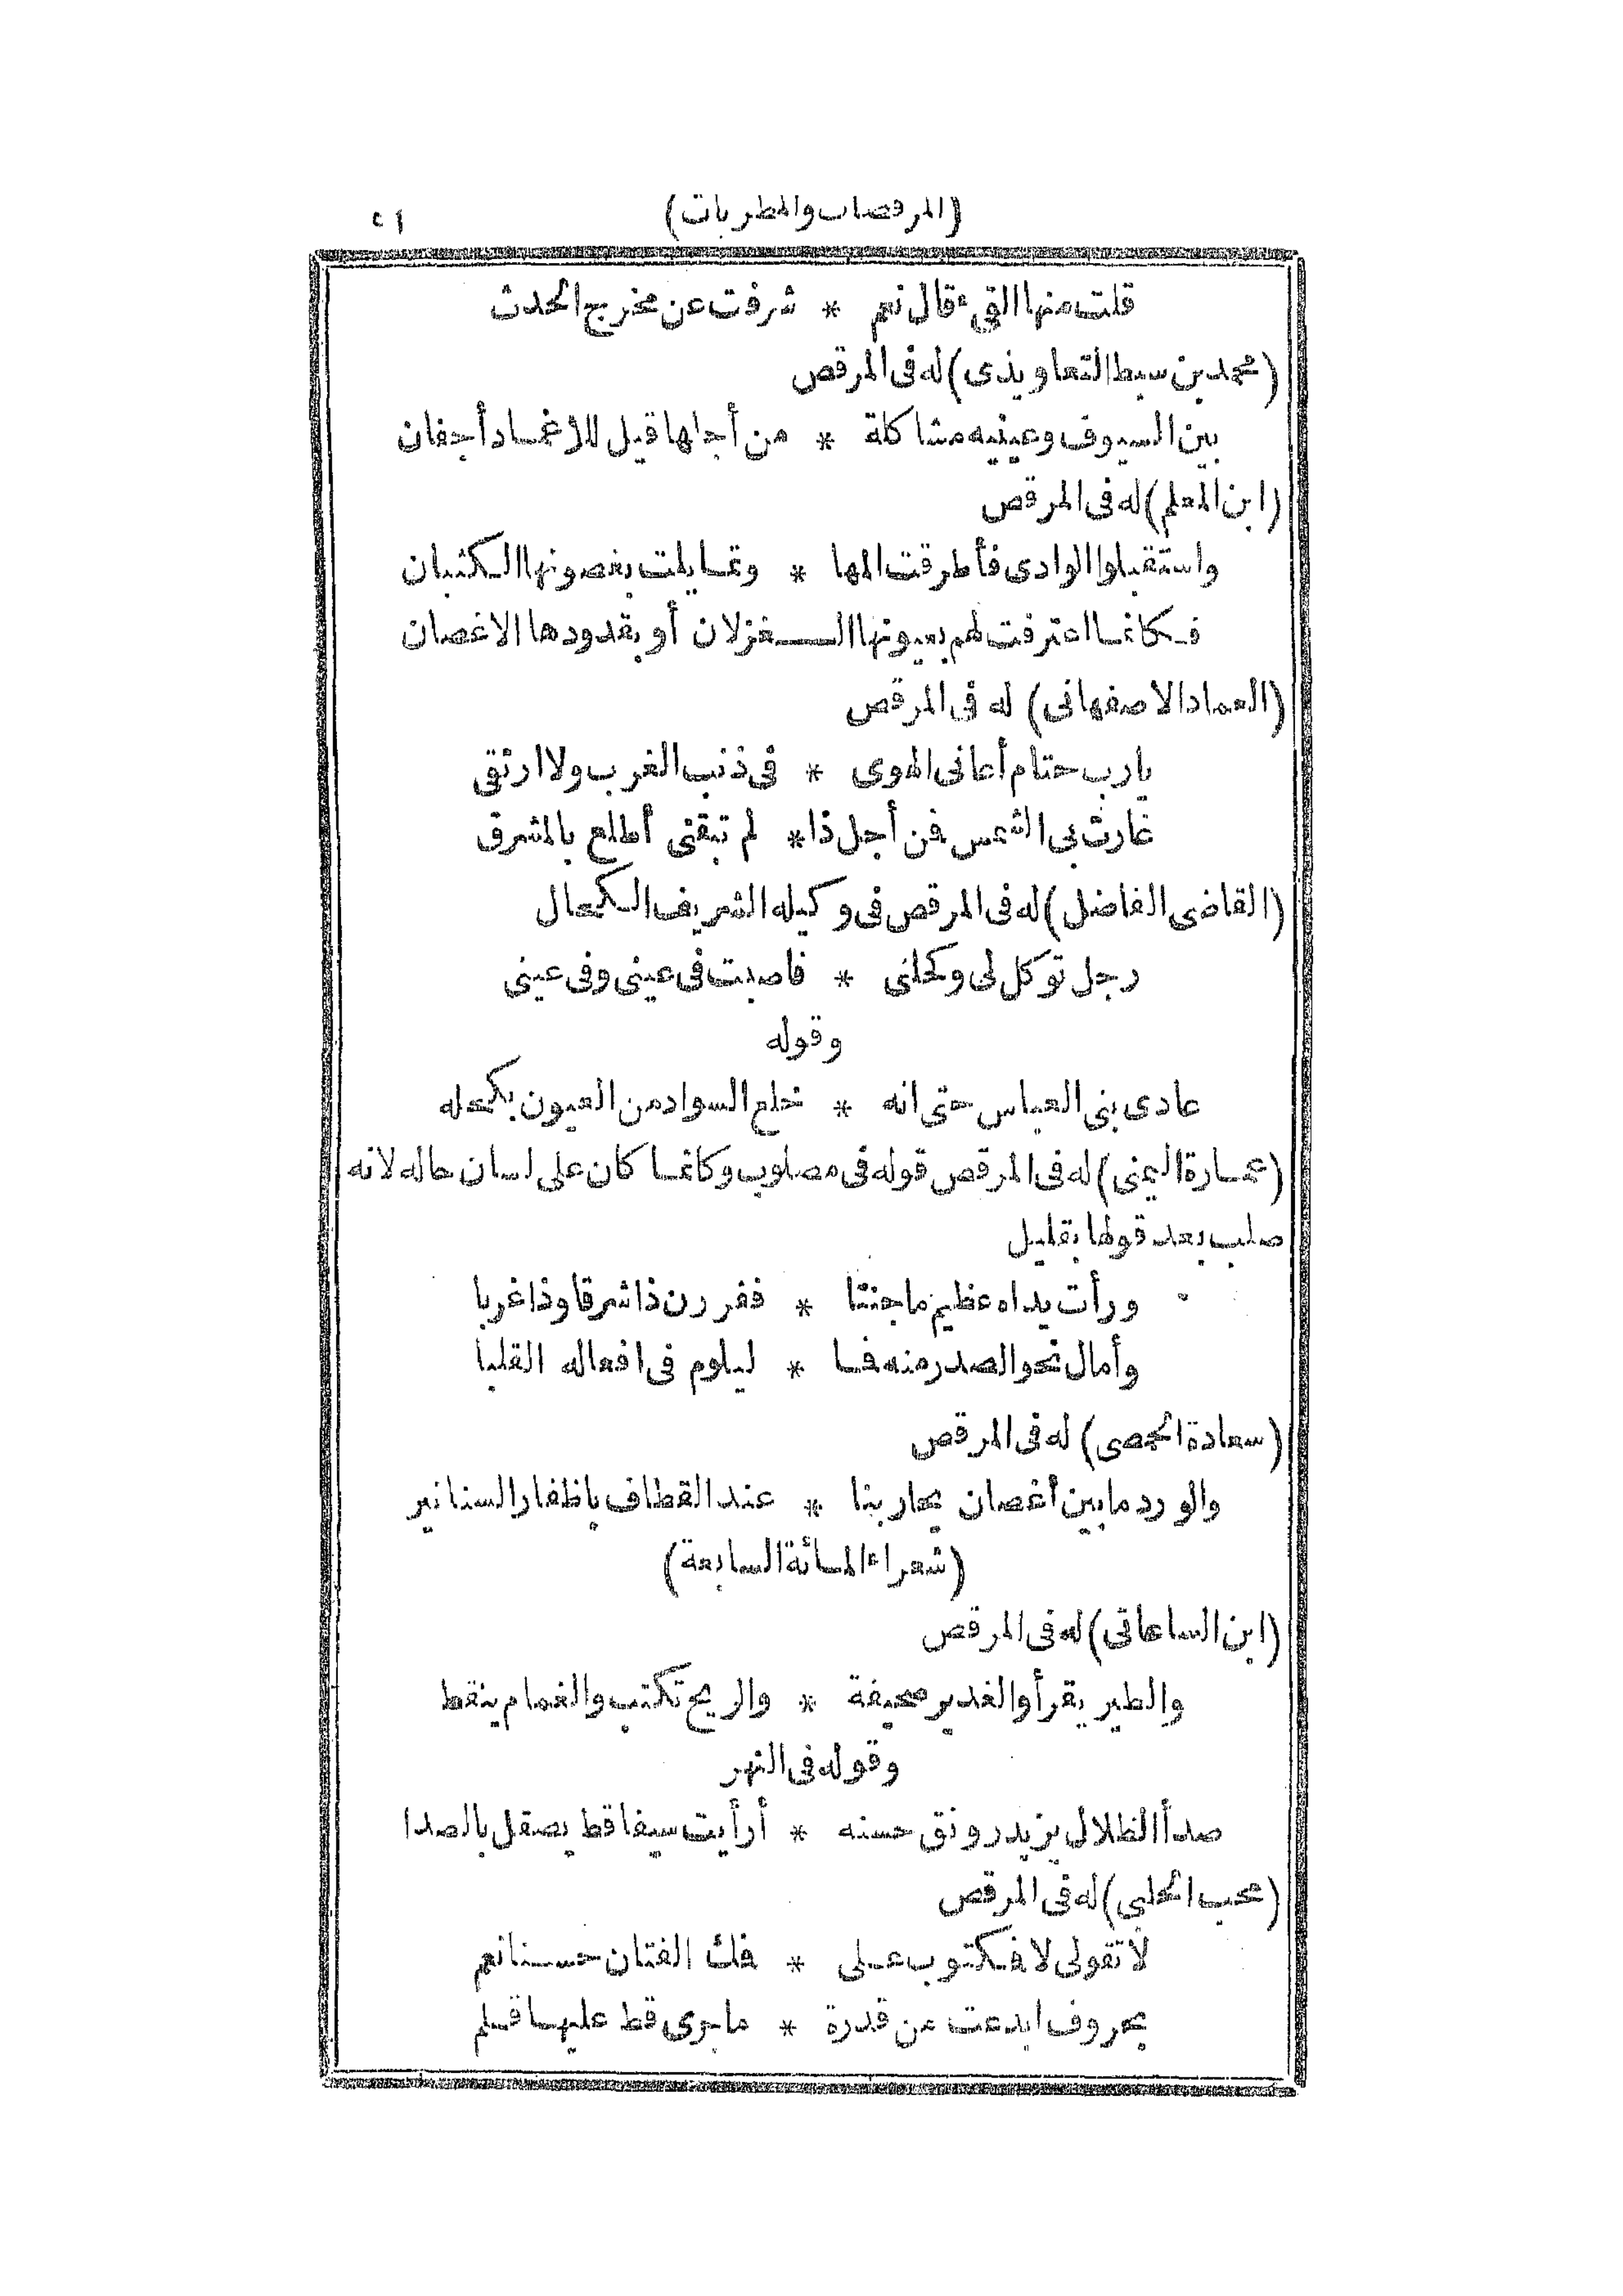 (المرقصات والمطربات) ٥١
قلت منها القىء قال نعم * شرفت عن مخرج الحدث
(محمد بن سبط التعاويذى) له فى المرقص
بين السيوف وعينيه مشاكلة * من أجلها قيل للاغماد أجفان
(ابن المعلم) له فى المرقص
واستقبلوا الوادى فأطرقت المها * وتمايلت بغصونها الكثبان
فكانما اعترفت لهم بعيونها الـغزلان أو بقدودها الاغصان
(العماد الاصفهانى) له فى المرقص
يارب حتام أعانى الهوى * فى ذنب الغرب ولا ارتقى
غارت بى الشمس فمن أجل ذا * لم تبقنى أطلع بالمشرق
(القاضى الفاضل) له فى المرقص فى وكيله الشريف الكحال
رجل توكل لى وكحلنى * فاصبت فى عينى وفى عينى
وقوله
عادى بنى العباس حتى انه * خلع السواد من العيون بكحله
(عمارة اليمنى) له فى المرقص قوله فى مصلوب وكانما كان على لسان حاله لانه
صلب بعد قولها بقليل
ورأت يداه عظيم ما جنتا * ففررن ذا شرقا وذا غربا
وأمال نحو الصدر منه فما * ليلوم فى افعاله القلبا
(سعادة الحمصى) له فى المرقص
والورد ما بين أغصان يحاربنا * عند القطاف باظفار السنانير
(شعراء المائة السابعة)
(ابن الساعاتى) له فى المرقص
والطير يقرأ والغدير صحيفة * والريح تكتب والغمام ينقط
وقوله فى النهر
صدأ الظلال يزيد رونق حسنه * أرأيت سيفا قط يصقل بالصدا
(محب الحلبى) له فى المرقص
لا تقولى لا فمكتوب على * فك الفتان حسنا نعم
بحروف ابدعت عن قدرة * ما جرى قط عليها قلم